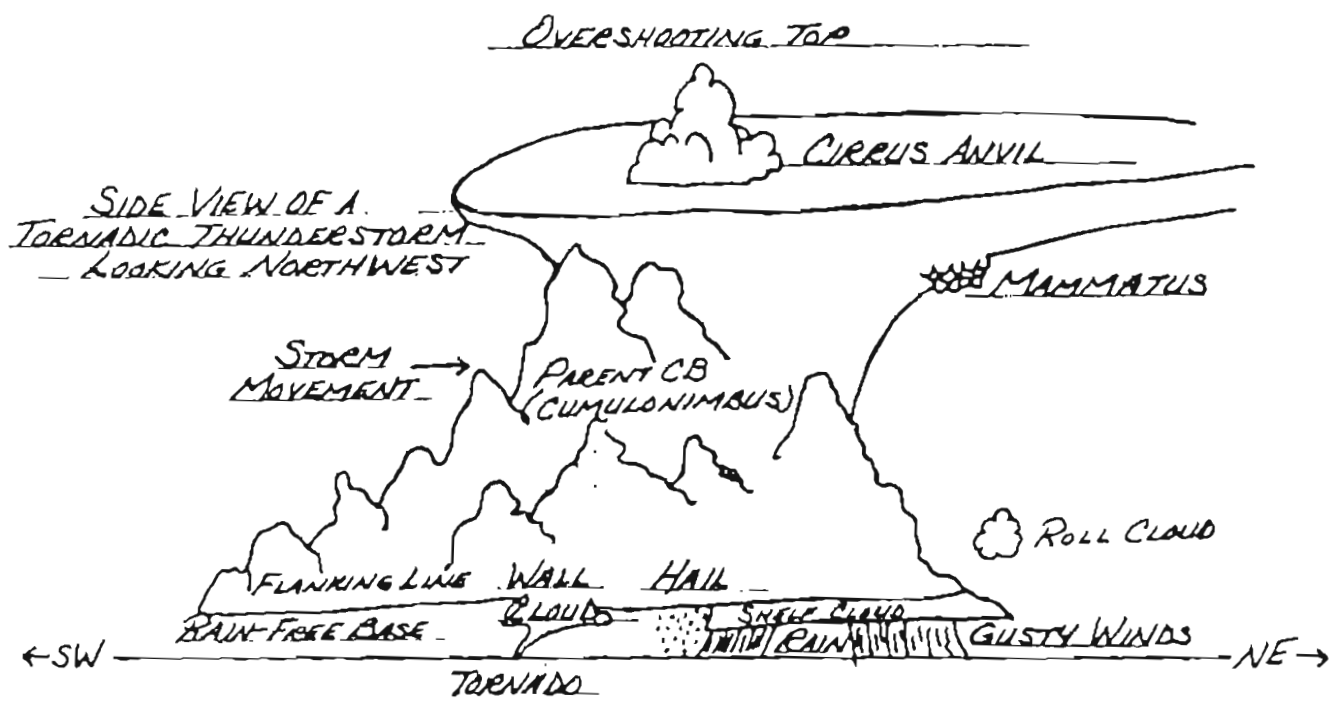 OVERSHOOTING TOP
CIRRUS ANVIL
SIDE VIEW OF A
TORNADIC THUNDERSTORM
LOOKING NORTHWEST
MAMMATUS
STORM
MOVEMENT
PARENT CB
(CUMULONIMBUS)
ROLL CLOUD
FLANKING LINE
WALL
CLOUD
HAIL
SHELF CLOUD
RAIN-FREE BASE
RAIN
GUSTY WINDS
←SW
NE→
TORNADO